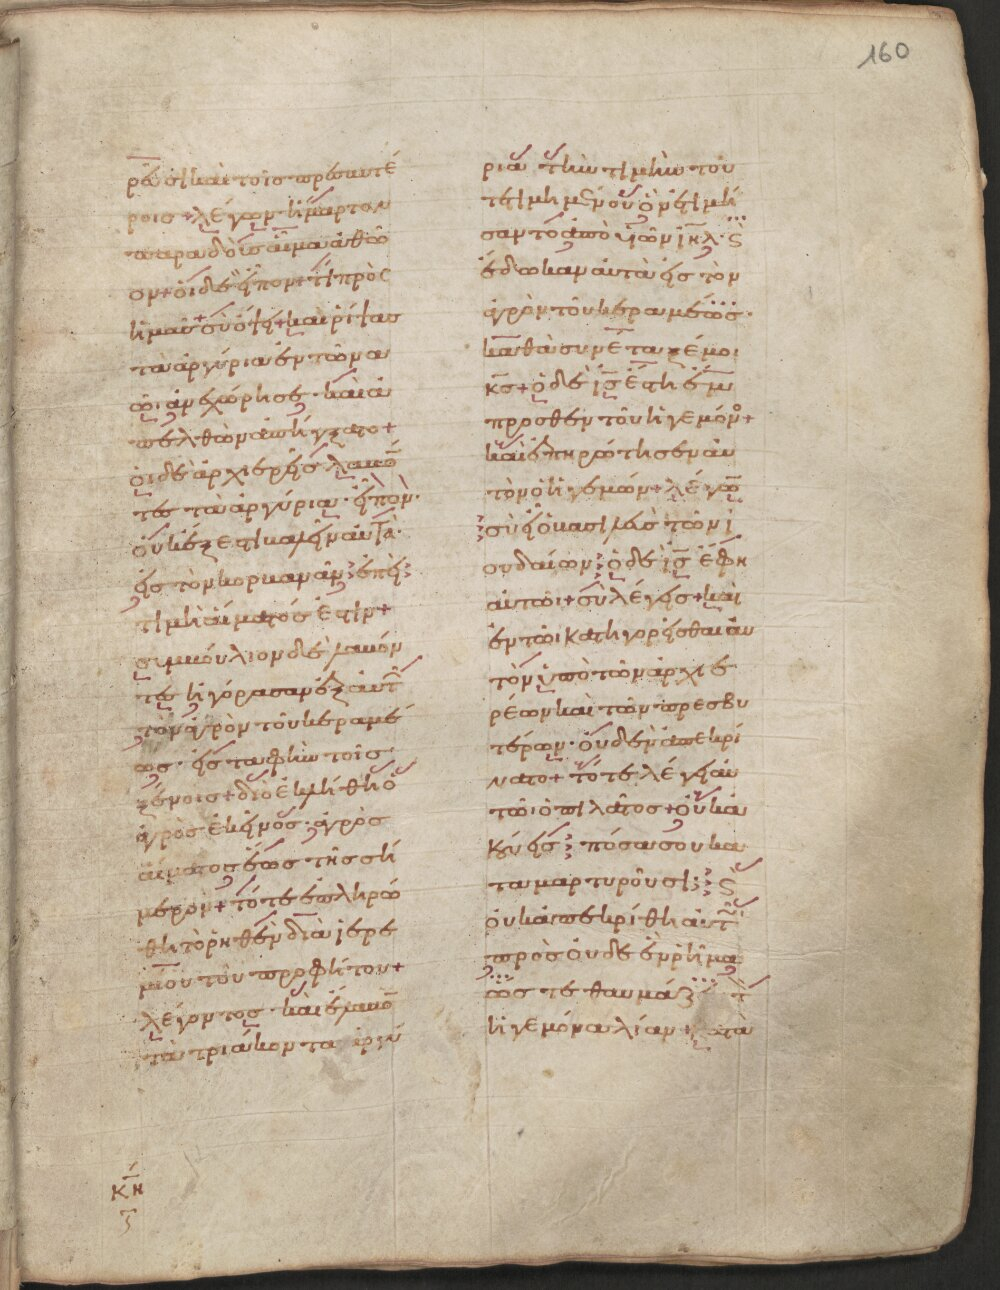 160
ρεῦσι καὶ τοῖς πρεσβυτέ
ροις + λέγων· ἥμαρτον
παραδοὺς αἷμα ἀθῶ
ον + οἱ δὲ εἶπον + τί πρὸς
ἡμᾶς + σὺ ὄψει + καὶ ῥίψας
τὰ ἀργύρια ἐν τῶ να
ῶι ἀνεχώρησε· καὶ ἀ
πελθὼν ἀπήγξατο +
οἱ δὲ ἀρχιερεῖς λαβόν
τες τὰ ἀργύρια· εἶπον·
οὐκ ἔξεστι βαλεῖν αὐτὰ
εἰς τὸν κορβανάν· ἐπεὶ
τιμὴ αἵματός ἐστιν +
συμβούλιον δὲ λαβόν
τες ἠγόρασαν ἐξ αὐτῶν
τὸν ἀγρὸν τοῦ κεραμέ
ως· εἰς ταφὴν τοῖς
ξένοις + διὸ ἐκλήθη ὁ
ἀγρὸς ἐκεῖνος· ἀγρὸς
αἵματος ἕως τῆς σή
μερον + τότε ἐπληρώ
θη τὸ ῥηθὲν διὰ ἱερε
μίου τοῦ προφήτου +
λέγοντος· καὶ ἔλαβον
τὰ τριάκοντα ἀργύ
ρια τὴν τιμὴν τοῦ
τετιμημένου ὃν ἐτιμή
σαντο ἀπὸ υἱῶν ιηλ· ϛ
ἔδωκαν αὐτὰ εἰς τὸν
ἀγρὸν τοῦ κεραμέως·
καθὰ συνέταξέ μοι
κς + ὁ δὲ ις ἔστη ἔμ
προσθεν τοῦ ἡγεμόνος +
καὶ ἐπηρώτησεν αὐ
τὸν ὁ ἡγεμών + λέγων
σὺ εἶ ὁ βασιλεὺς τῶν ἰ
ουδαίων· ὁ δὲ ις ἔφη
αὐτῶι + σὺ λέγεις + καὶ
ἐν τῶι κατηγορεῖσθαι αὐ
τὸν ὑπὸ τῶν ἀρχιε
ρέων καὶ τῶν πρεσβυ
τέρων· οὐδὲν ἀπεκρί
νατο + τότε λέγει αὐ
τῶι ὁ πιλᾶτος + οὐκ ἀ
κούεις· πόσα σου κα
ταμαρτυροῦσι· ϛ
οὐκ ἀπεκρίθη αὐτῶ
πρὸς οὐδὲ ἓν ῥῆμα
ὥστε θαυμάζ τ
ἡγεμόνα λίαν + κατὰ
κη
ζ